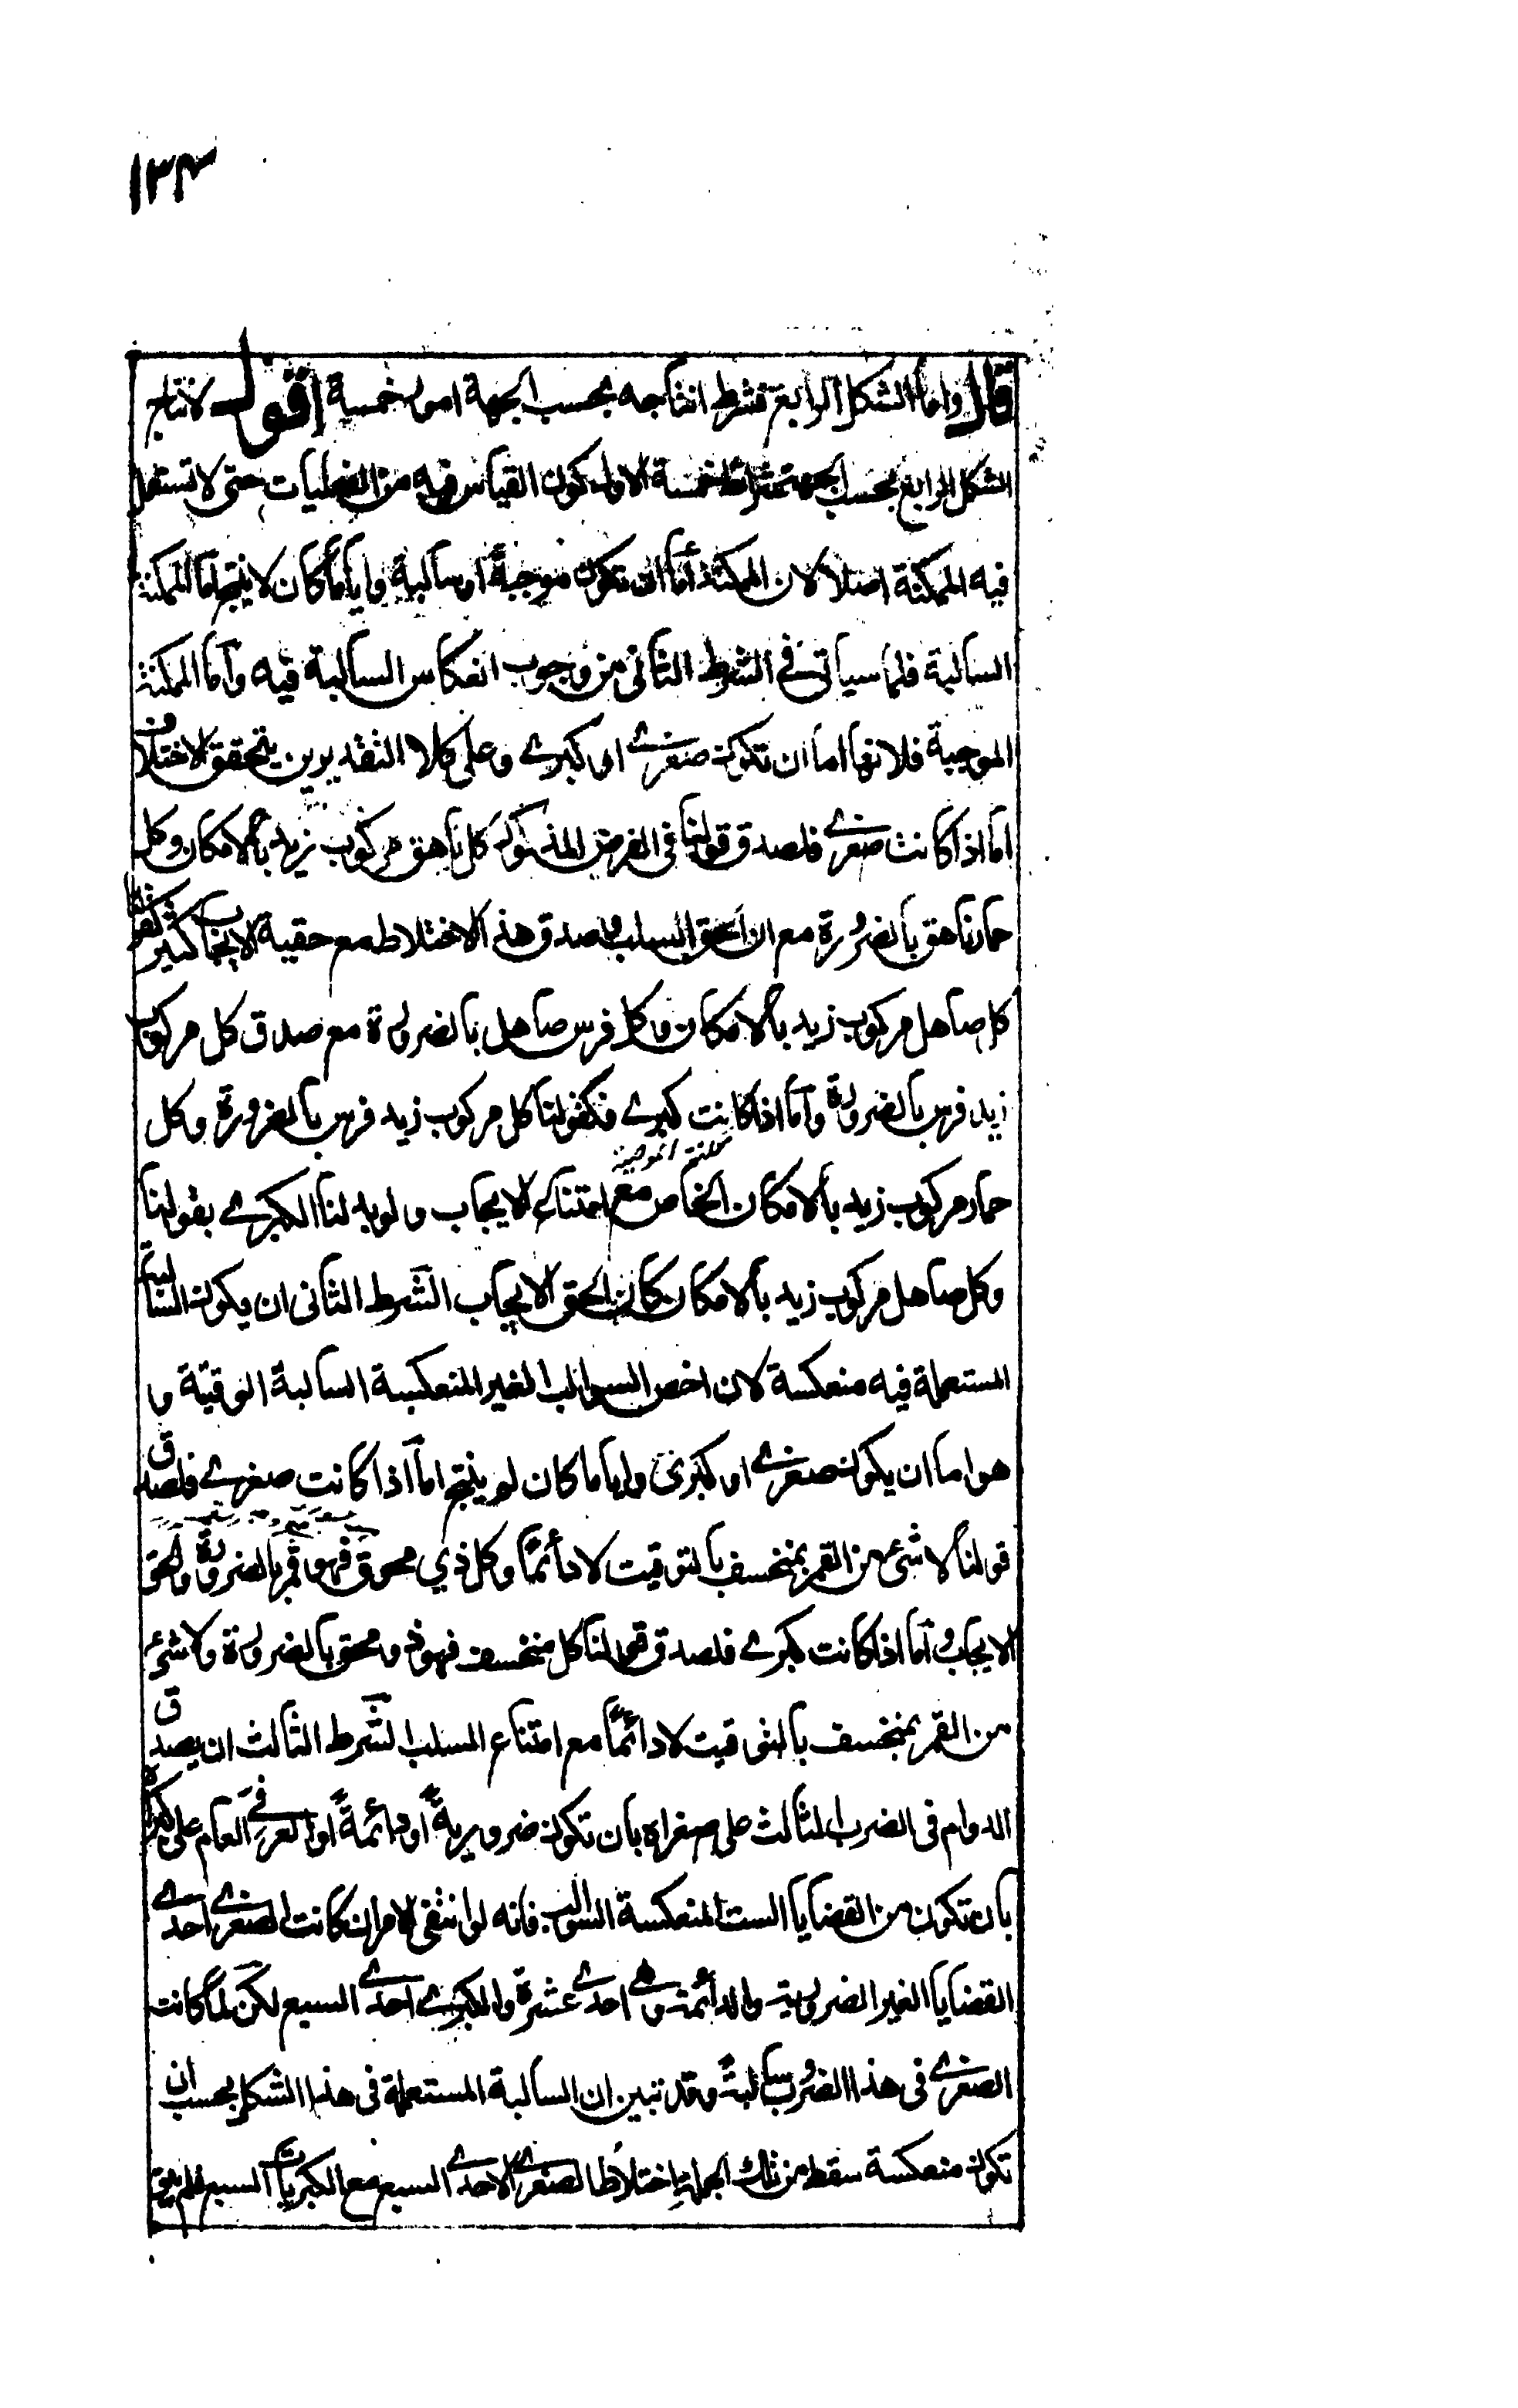 ١٣٤
قال واما الشكل الرابع فشرط انتاجه بحسب الجهة امور خمسة اقول لانتاج
الشكل الرابع بحسب الجهة شرائط خمسة الاول كون القياس فيه من الفعليات حتى لا تستعمل
فيه الممكنة اصلا لان الممكنة اما ان تكون موجبة او سالبة وايا ما كان لا ينتج اما الممكنة
السالبة فلما سياتى فى الشرط الثانى من وجوب انعكاس السالبة فيه واما الممكنة
الموجبة فلانها اما ان تكون صغرى او كبرى وعلى كلا التقديرين يتحقق الاختلاف
اما اذا كانت صغرى فلصدق قولنا فى الفرض المذكور كل ناهق مركوب زيد بالامكان وكل
حمار ناهق بالضرورة مع ان الحق السلب وصدق هذا الاختلاط مع حقية الايجاب كثير كقولنا
كل صاهل مركوب زيد بالامكان وكل فرس صاهل بالضرورة مع صدق كل مركوب
زيد فرس بالضرورة واما اذا كانت كبرى فكقولنا كل مركوب زيد فرس بالضرورة وكل
حمار مركوب زيد بالامكان الخاص مع امتناع الايجاب ولو بدلنا الكبرى بقولنا
وكل صاهل مركوب زيد بالامكان كان الحق الايجاب الشرط الثانى ان يكون السالبة
المستعملة فيه منعكسة لان اخص السوالب الغير المنعكسة السالبة الوقتية و
هو اما ان يكون صغرى او كبرى وايا ما كان لم ينتج اما اذا كانت صغرى فلصدق
قولنا لا شئ من القمر بمنخسف بالتوقيت لا دائما وكل ذي محوق فهو قمر بالضرورة والحق
الايجاب واما اذا كانت كبرى فلصدق قولنا كل منخسف فهو ذو محق بالضرورة ولا شئ
من القمر بمنخسف بالتوقيت لا دائما مع امتناع السلب الشرط الثالث ان يصدق
الدوام فى الضرب الثالث على صغراه بان تكون ضرورية او دائمة او العرفي العام على كبراه
بان تكون من القضايا الست المنعكسة السوالب فانه لو انتفى الامران كانت الصغرى احدى
القضايا الغير الضرورية والدائمة وهى احدى عشرة والكبرى احدى السبع لكن لما كانت
الصغرى فى هذا الضرب سالبة وقد تبين ان السالبة المستعملة فى هذا الشكل يجب ان
تكون منعكسة سقط من تلك الجملة اختلاط الصغرى الاحدى السبع مع الكبريات السبع فلم يبق